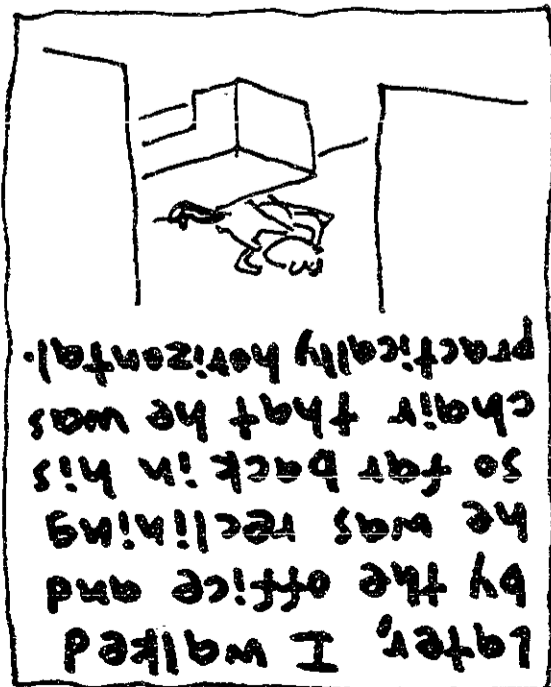 Later, I walked
by the office and
he was reclining
so far back in his
chair that he was
practically horizontal.